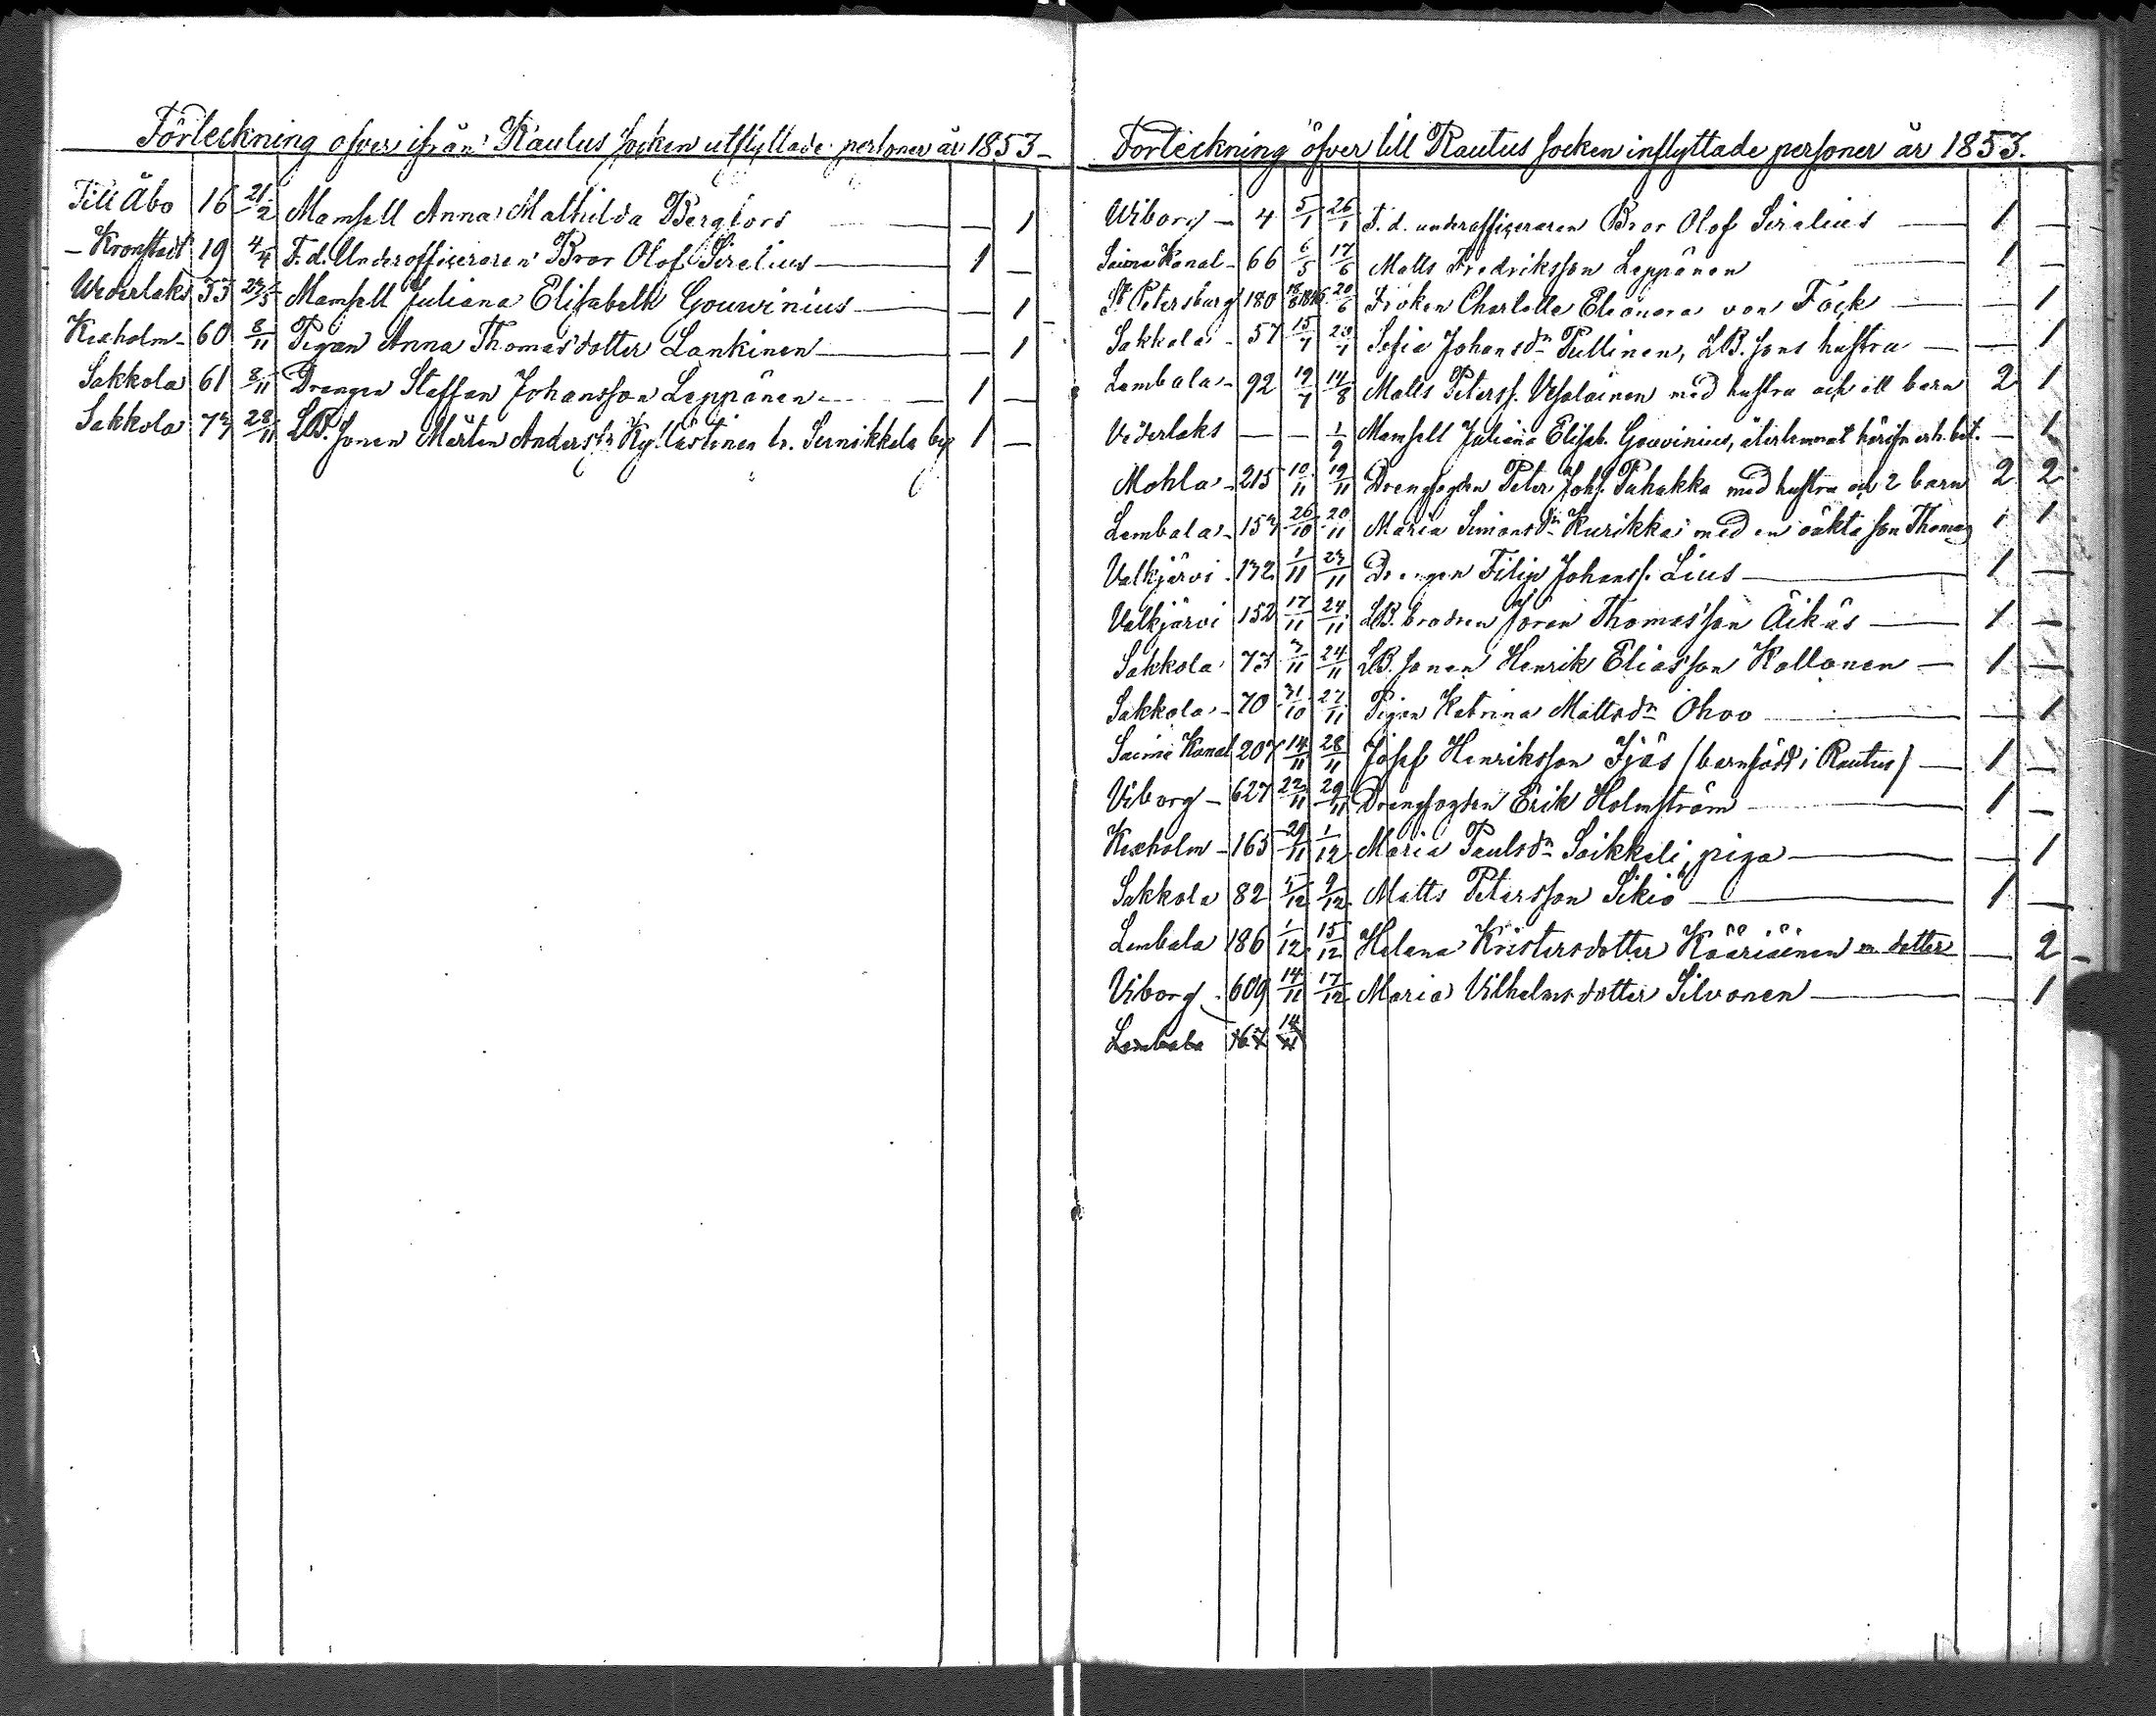 Förteckning öfver ifrån Rautus socken utflyttade personer år 1853
Till Åbo 16 21/2 Mamsell Anna Mathilda Bergfors — 1
— Kronstadt 19 4/4 F. d. Underofficeraren Bror Olof Sirelius — 1 —
Wederlaks 33 23/5 Mamsell Juliana Elisabeth Gouvinius — — 1
Kexholm — 60 8/11 Pigan Anna Thomasdotter Lankinen — — 1
Sakkola 61 8/11 Drengen Staffan Johansson Leppänen — 1 —
Sakkola 73 28/11 LB. sonen Mårten Anderss. fr. Sernikkala by 1 —
Förteckning öfver till Rautus socken inflyttade personer år 1853.
Wiborg — 4 5/1 26/1 F. d. underofficeraren Bror Olof Sirelius — 1 —
Saima Kanal — 66 6/5 17/6 Matts Fredriksson Leppänen 1 —
St Petersburg 180 20/6 Fröken Charlotta Eleonora von Föck — — 1
Sakkola — 57 Sofia Johansdr Pullinen, LB. sons hustru — — 1
Lembala — 92 14/8 Matts Peterss. Vesalainen med hustru och ett barn 2 1
Vederlaks — — 1/9 Mamsell Juliana Elisab. Gouvinius, återkommit — 1
Mohla — 215 10/11 19/11 Drengfogden Peter Johs. Pahakka med hustru och 2 barn 2 2
Lembala — 153 26/10 20/11 Maria Simonsdr Kurikka med en oäkta son Thomas 1 1
Valkjärvi . 132 1/11 23/11 Drengen Filip Johanss. Lius — 1 —
Valkjärvi 152 17/11 24/11 LB. brodren Jöran Thomasson Äikäs — 1 —
Sakkola 73 3/11 24/11 LB. sonen Henrik Eliasson Kollanen — 1 —
Sakkola — 70 31/10 27/11 Pigan Katrina Mattsdr Ohvo — — 1
Saima Kanal 207 14/11 28/11 Josef Henriksson Ijäs (barnfödd i Rautus) — 1 —
Viborg — 627 22/11 29/11 Drengfogden Erik Holmström — 1 —
Kexholm — 163 29/11 1/12 Maria Paulsdr Saikkali, piga — — 1
Sakkola 82 1/12 9/12 Matts Petersson Sikiö — 1 —
Lembala 186 1/12 15/12 Helena Kristersdotter Kääriäinen m. dotter — 2
Viborg . 609 14/11 17/12 Maria Vilhelmsdotter Silvonen — — 1
Lembala 167 14/11